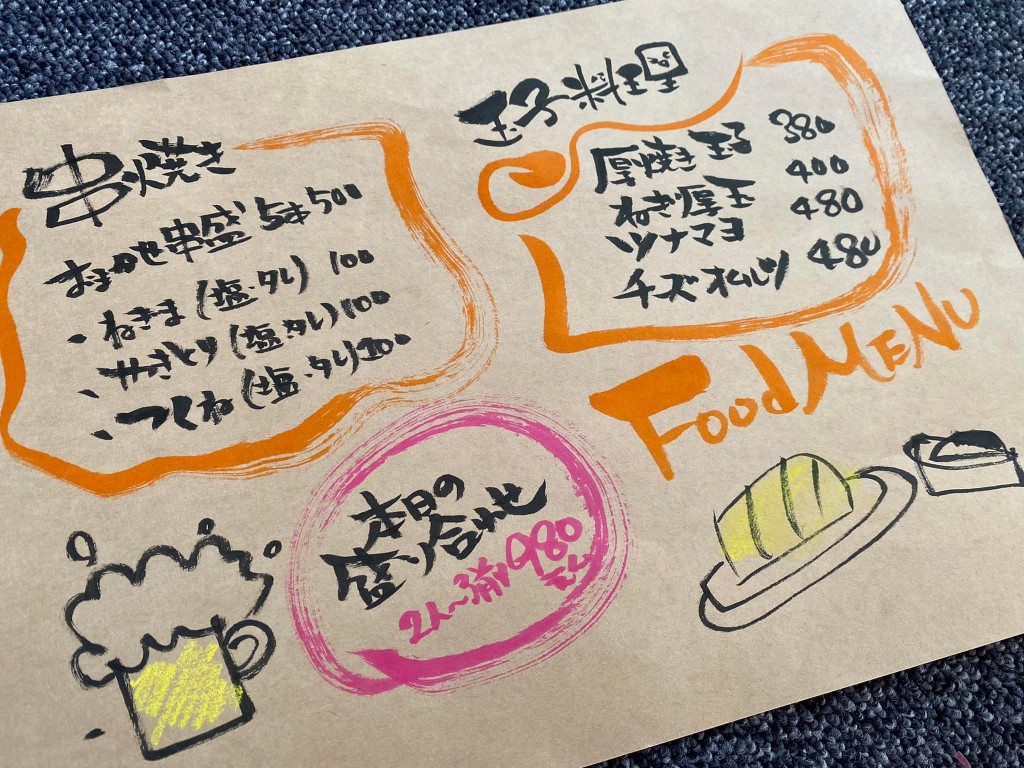 串焼き
おまかせ串盛り 5本 500
・ねぎま(塩・タレ) 100
・せぎとり(塩・タレ) 100
・つくね(塩・タレ) 100
玉子料理
厚焼き玉子 380
ねぎ厚玉 400
ツナマヨ 480
チーズオムレツ 480
Food MENU
本日の
盛り合わせ
2人〜3人前 980
えん